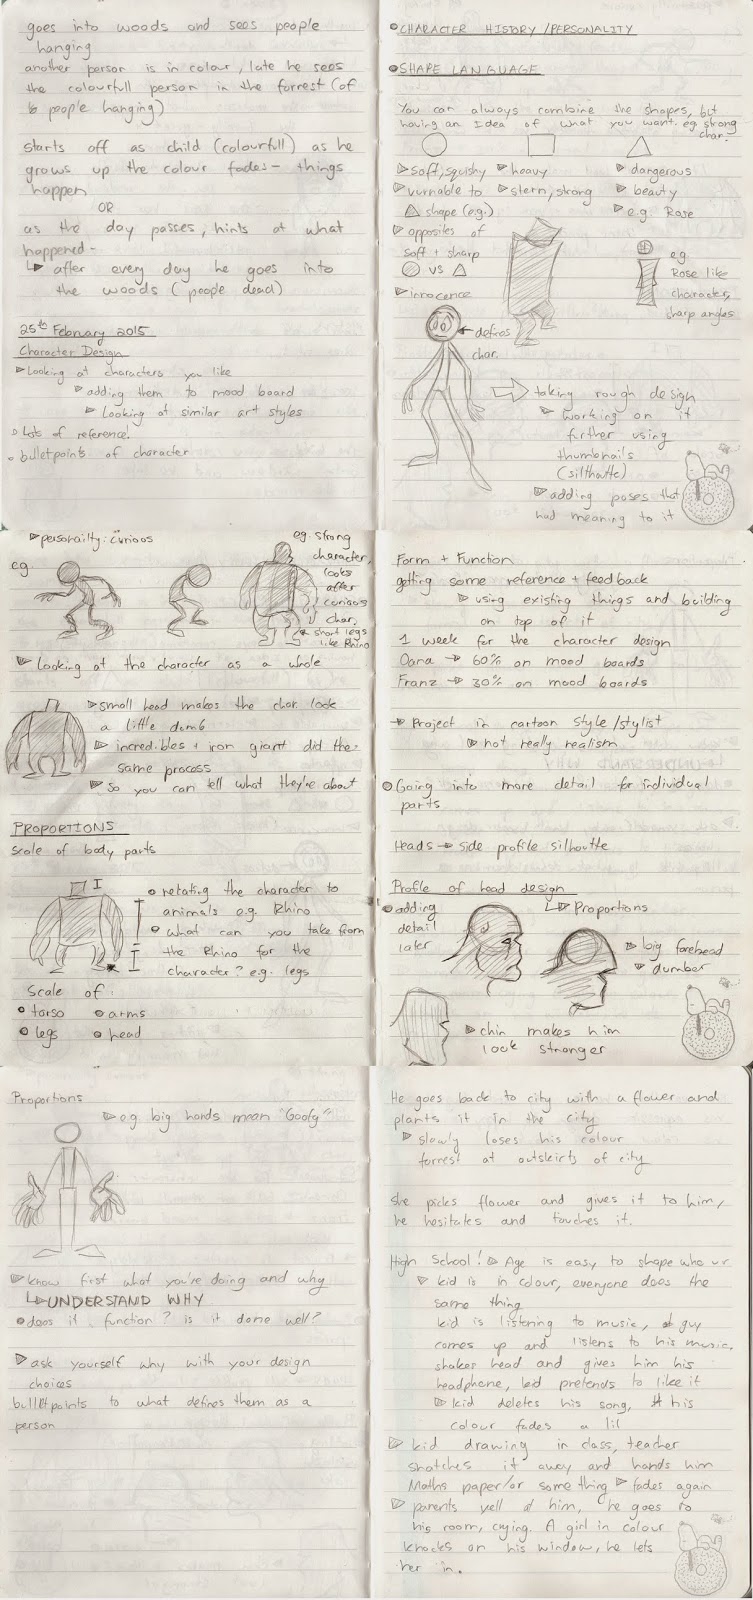 goes into woods and sees people
hanging
another person is in colour, late he sees
the colourfull person in the forrest (of
people hanging)
starts off as child (colourfull) as he
grows up the colour fades - things
happen
OR
as the day passes, hints at what
happened -
after every day he goes into
the woods (people dead)
25th February 2015
Character Design
Looking at characters you like
adding them to mood board
Looking at similar art styles
Lots of reference.
bulletpoints of character
CHARACTER HISTORY/PERSONALITY
SHAPE LANGUAGE
You can always combine the shapes, but
having an Idea of what you want. eg strong
char.
soft, squishy
vurnable to
shape (eg.)
opposites of
soft + sharp
VS
innocence
heavy
stern, strong
dangerous
beauty
e.g Rose
eg
Rose like
character,
sharp angles
defines
char.
taking rough design
working on it
further using
thumbnails
(silhoutte)
adding poses that
had meaning to it
personailty: curioos
eg
eg. strong
character,
looks
after
curious
char.
short legs
like Rhino
Looking at the character as a whole
small head makes the char. look
a little dumb
incredibles + iron giant did the
same process
so you can tell what they're about
PROPORTIONS
scale of body parts
relating the character to
animals e.g. Rhino
what can you take from
the Rhino for the
character? e.g. legs
scale of:
torso
arms
legs
head
Form + Function
getting some reference + feedback
using existing things and building
on top of it
1 week for the character design
Oana → 60% on mood boards
Franz → 30% on mood boards
→ Project in cartoon style/stylist
not really realism
Going into more detail for individual
parts
Heads → side profile silhoutte
Profile of head design
adding
detail
later
Proportions
big forehead
dumber
chin makes him
look stronger
Proportions
e.g big hands mean "Goofy"
know first what you're doing and why
UNDERSTAND WHY
does it function? is it done well?
ask yourself why with your design
choices
bulletpoints to what defines them as a
person
He goes back to city with a flower and
plants it in the city
slowly loses his colour
forrest at outskirts of city
she picks flower and gives it to him,
he hesitates and touches it.
High School! Age is easy to shape who ur
kid is in colour, everyone does the
same thing
kid is listening to music, guy
comes up and listens to his music,
shakes head and gives him his
headphone, kid pretends to like it
kid deletes his song, his
colour fades a lil
kid drawing in class, teacher
snatches it away and hands him
Maths paper/or some thing fades again
parents yell at him, he goes to
his room, crying. A girl in colour
knocks on his window, he lets
her in.